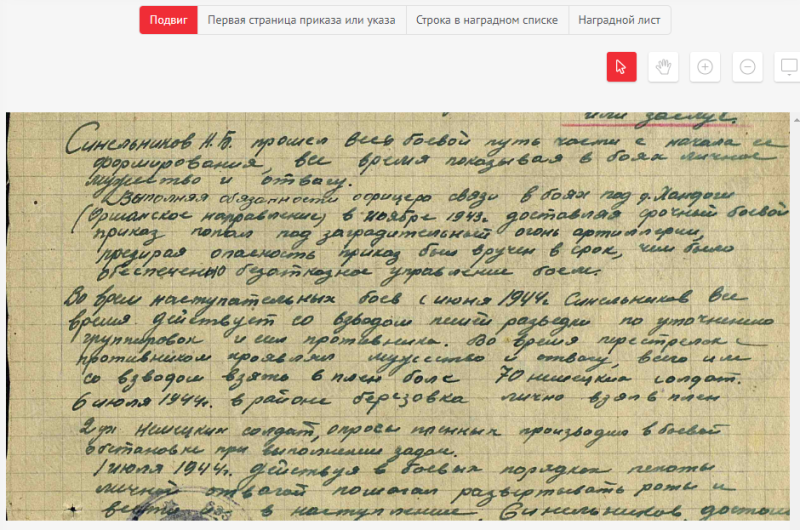 Подвиг Первая страница приказа или указа Строка в наградном списке Наградной лист
или заслуг.
Синельников Н.Б. прошел весь боевой путь части с начала ее
формирования, все время показывая в боях личное
мужество и отвагу.
Выполняя обязанности офицера связи в боях под д. Хандоги
(Оршанское направление) в ноябре 1943г. доставляя срочный боевой
приказ попал под заградительный огонь артиллерии,
презирая опасность приказ был вручен в срок, чем было
обеспечено безотказное управление боем.
Во врем наступательных боев с июня 1944г. Синельников все
время действует со взводом пешей разведки по уточнению
группировок и сил противника. Во время перестрелок с
противником проявлял мужество и отвагу, всего им
со взводом взять в плен боле 70 немецких солдат.
6 июля 1944г. в районе березовка лично взял в плен
2 ух немецких солдат, опросы пленных производил в боевой
обстановке при выполнении задач.
1 июля 1944г. действуя в боевых порядках пехоты
личной отвагой помогал развертывать роты и
вести в наступление. Синельников